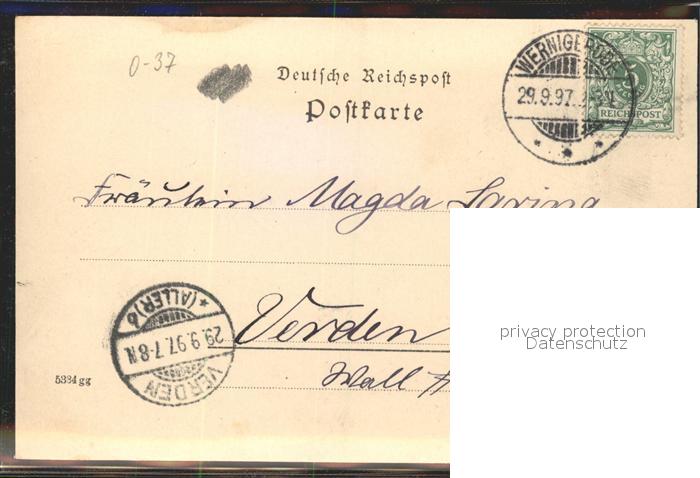 0-37
Deutsche Reichspost
Postkarte
WERNIGERODE
29.9.97.
5
REICHSPOST
Fräulein Magda Saring
Verden
Wall
VERDEN
29.9.97.7-8N.
*(ALLER)b
5334 gg
privacy protection
Datenschutz